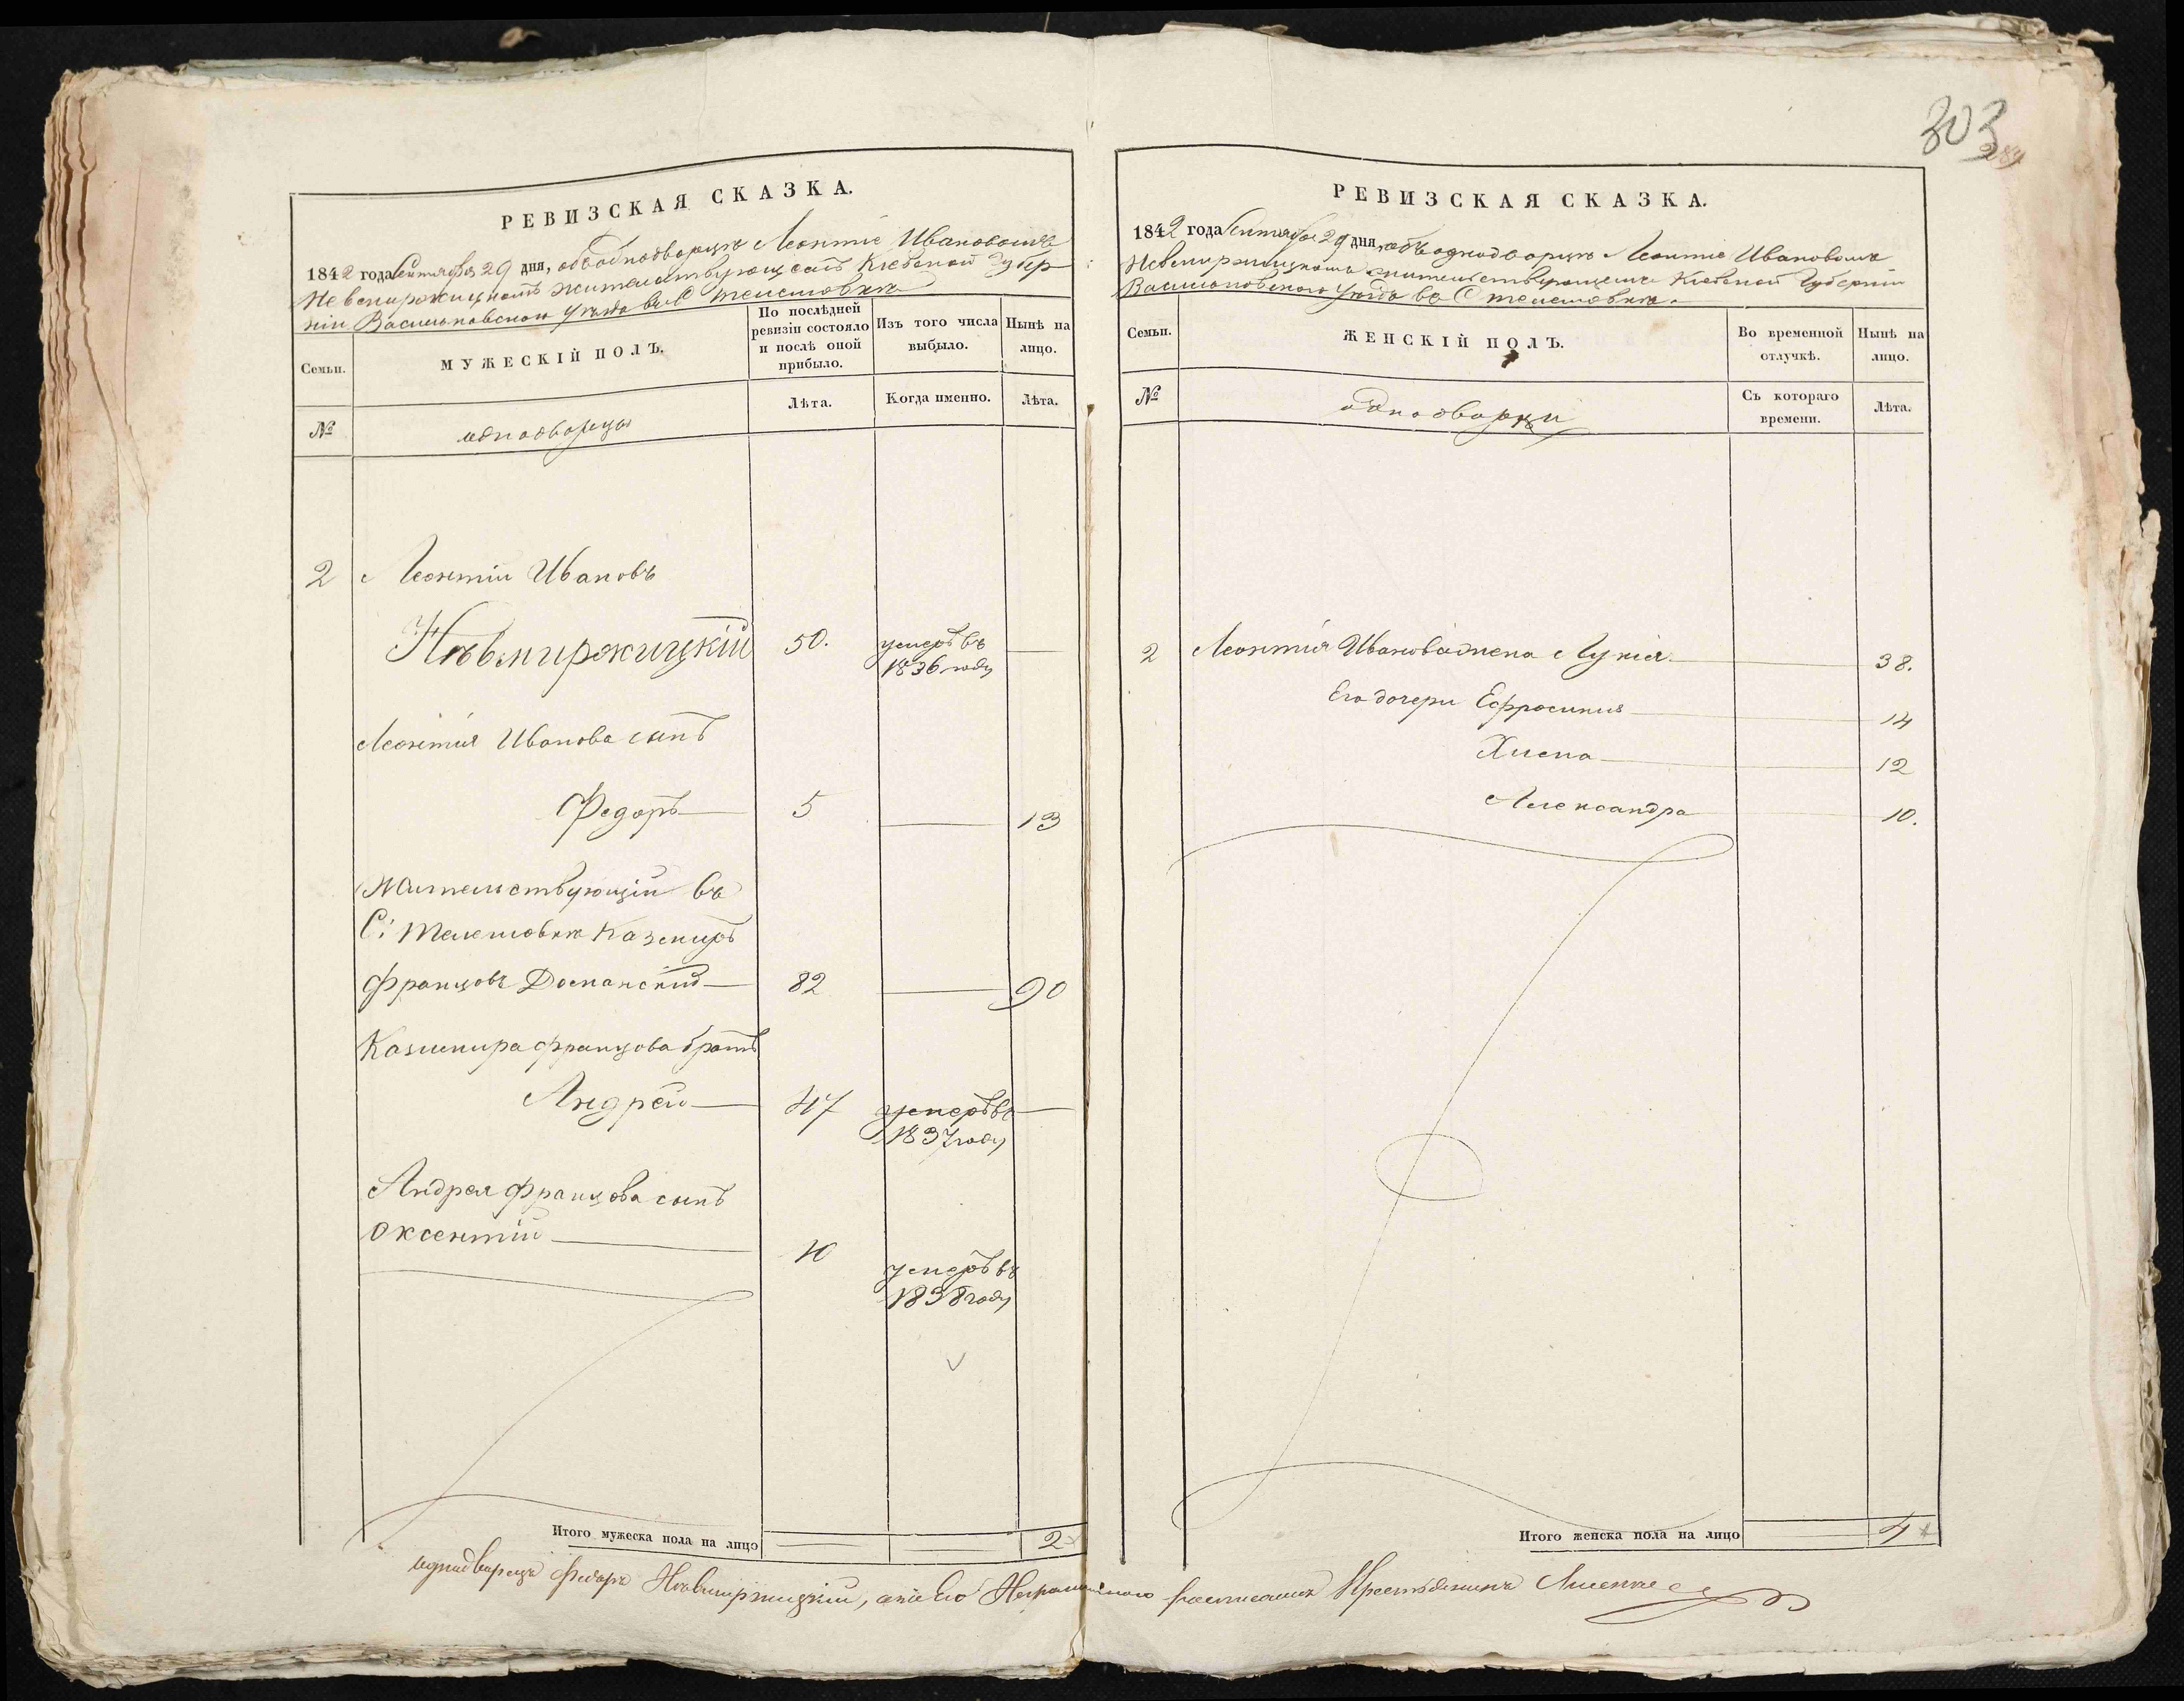 303
РЕВИЗСКАЯ СКАЗКА.
1842 года Сентября 29 дня, объ однодворцѣ Леонтіе Ивановомъ
Невмиржицкомъ жительствующемъ Кіевской Губер-
ніи Васильковского уѣзда въ С телешовки
Семьи.
МУЖЕСКІЙ ПОЛЪ.
По послѣдней ревизіи состояло и послѣ оной прибыло.
Изъ того числа выбыло.
Нынѣ на лицо.
№
однодворцы
Лѣта.
Когда именно.
Лѣта.
2 Леонтій Ивановъ
Нѣвмиржицкій 50. умеръ въ 1836 году
Леонтія Иванова сынъ
Федоръ 5 13
Жительствующій въ
С: телешовки Казмиръ
Францовъ Доманскій 82 90
Казимира францова братъ
Андрей 47 умеръ въ 1837 году
Андрея францова сынъ
Оксентій 10 умеръ въ 1838 году
Итого мужеска пола на лицо 2
РЕВИЗСКАЯ СКАЗКА.
1842 года Сентября 29 дня, объ однодворцѣ Леонтіе Ивановомъ
Невмиржицкомъ жительствующемъ Кіевской Губерніи
Васильковского уѣзда въ С телешовки.
Семьи.
ЖЕНСКІЙ ПОЛЪ.
Во временной отлучкѣ.
Нынѣ на лицо.
№
однодворки
Съ котораго времени.
Лѣта.
2 Леонтія Иванова жена Лукія 38.
Его дочери Ефросинія 14
Хима 12
Александра 10.
Итого женска пола на лицо 4
однодворецъ Федоръ Нѣвмиржицкій, а за его Неграмотного росписался Крестьянинъ